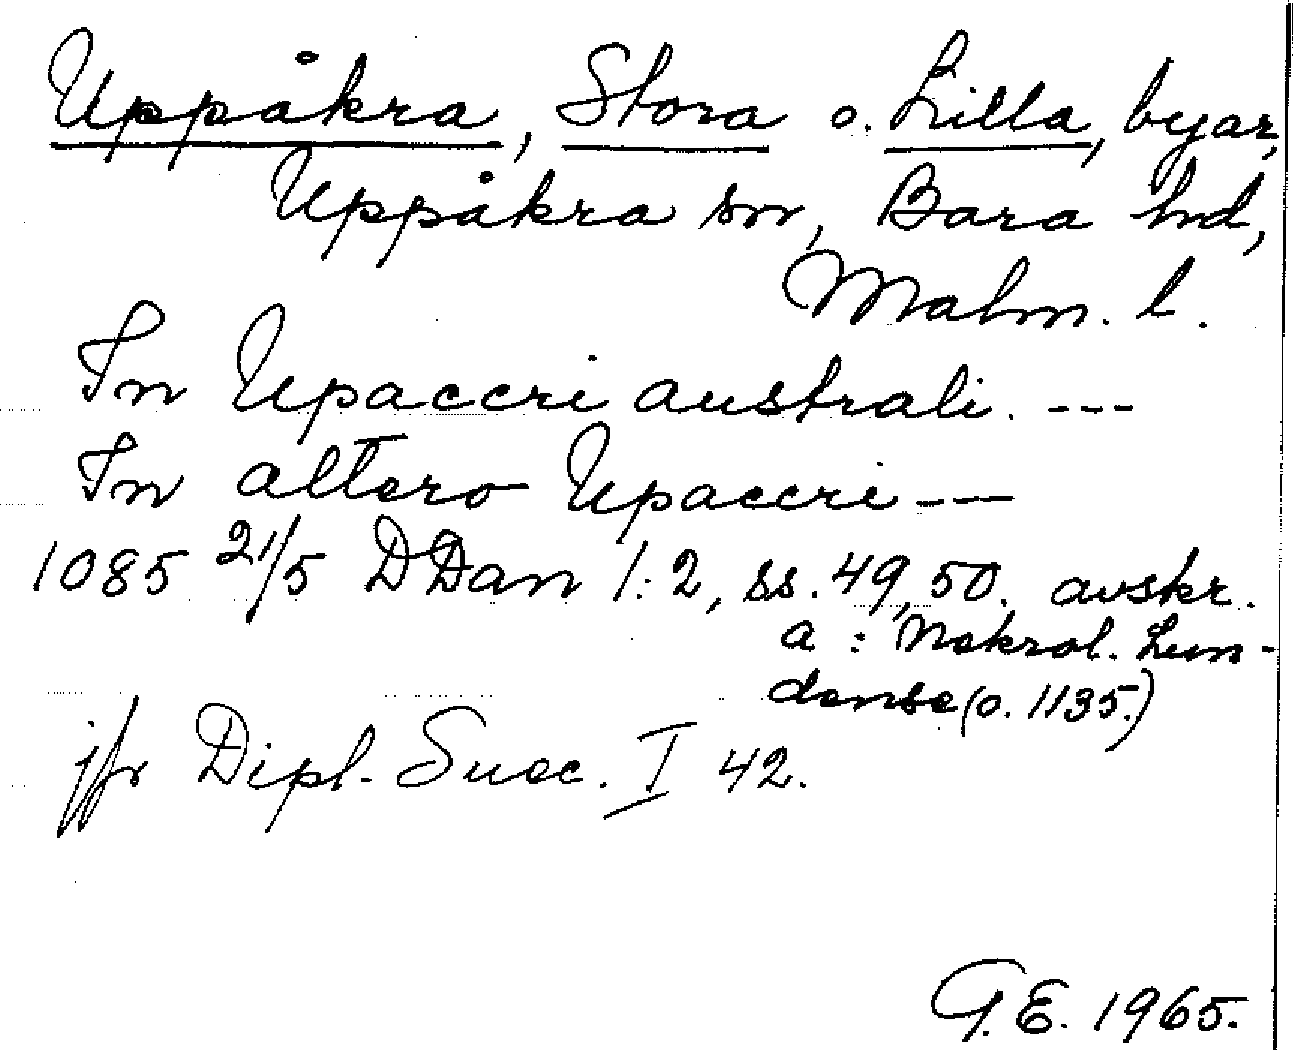 Uppåkra, Stora o. Lilla, byar,
Uppåkra sn, Bara hd,
Malm. l.
In Upaccri australi. ---
In altero Upaccri ---
1085 21/5 DDan 1:2, ss. 49, 50. avskr.
a : Nekrol. Lun-
dense (o. 1135.)
jfr Dipl. Suec. I 42.
G.E. 1965.